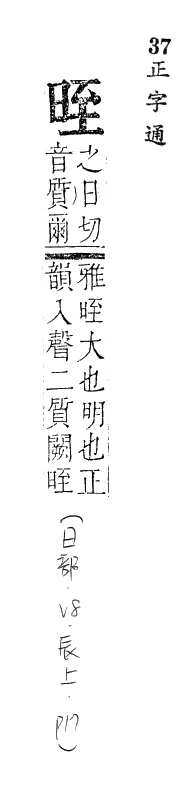 37正字通
晊
之日切
音質爾
雅晊大也明也正
韻入聲二質闕晊
(日部.V8.辰上.P17)